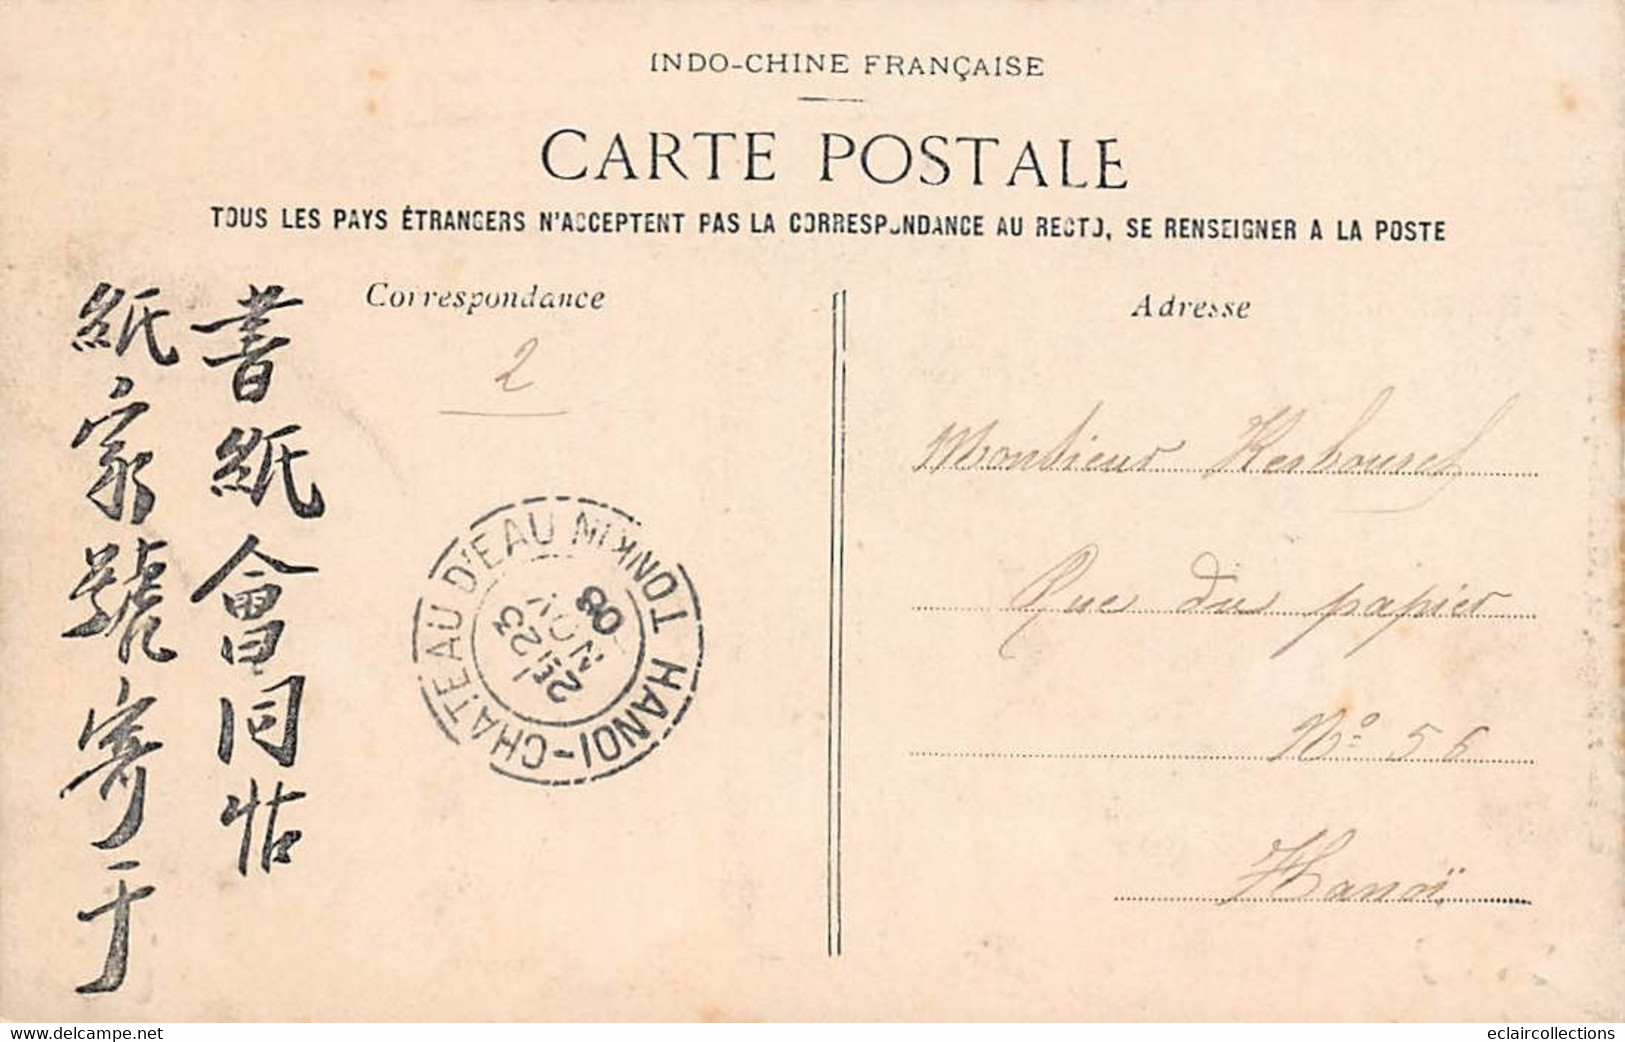 INDO-CHINE FRANÇAISE
CARTE POSTALE
TOUS LES PAYS ÉTRANGERS N'ACCEPTENT PAS LA CORRESPONDANCE AU RECTO, SE RENSEIGNER A LA POSTE
Correspondance
2
書紙會同帖
紙家號寄于
HANOI-CHATEAU D'EAU TONKIN
23
NOV
08
Adresse
Rue du papier
No 56
Hanoï
www.delcampe.net
eclaircollections